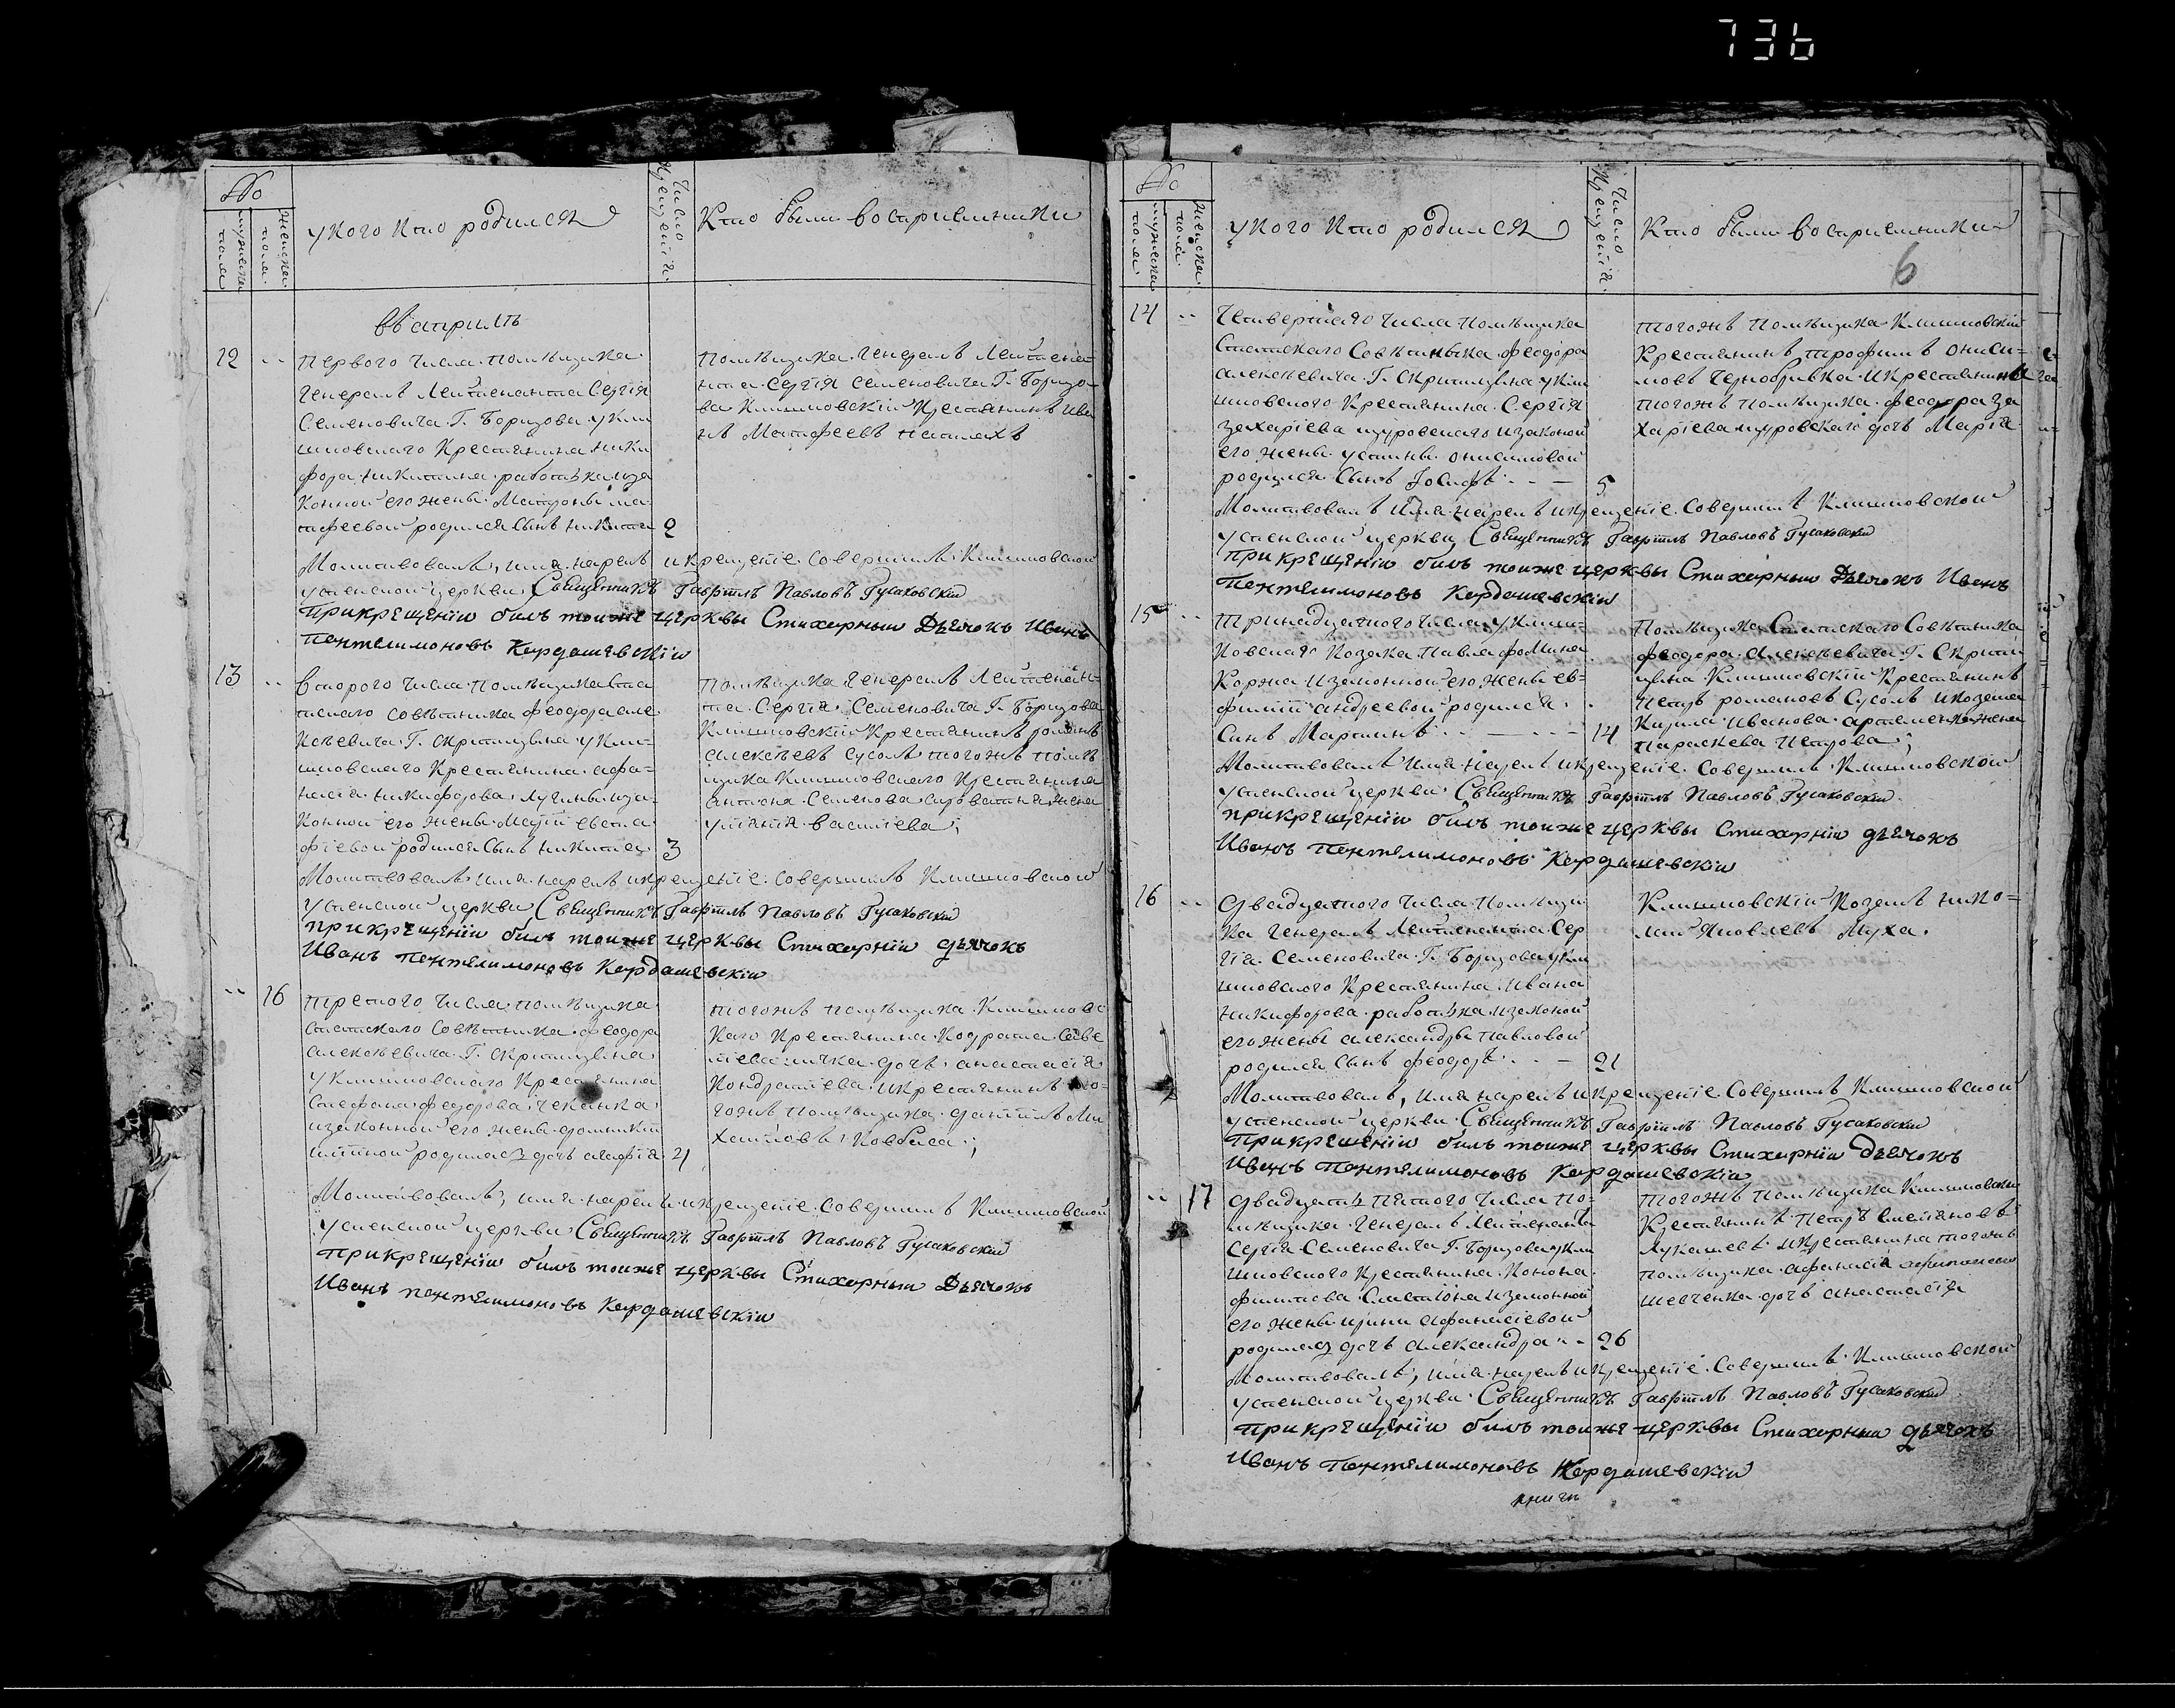 736
№
мужеска пола
женска пола
у кого кто родился
Число крещенїя
Кто были восприемники
въ априлѣ
12 первого числа помѣщика
генералъ лейтенанта Сергія
Семеновича Г. Борщова у Кли
шковского крестянина ники
фора никитина работѣ иза
конной его жены Матроны ма
тфеевой родился сынъ никита 2
помѣщика генералъ лейтена
нта Сергія Семеновича Г. Борщо
ва крестянинъ Ива
нъ Матфеевъ
Молитвовалъ, имя нарелъ и крещенїе совершилъ
успенской церкви Священникъ Гаврїилъ Павловъ Гусаковскїй
при крещенїи билъ тоиже церквы Стихарный Дьячокъ Иванъ
Пантелимоновъ Кардашевскїи
13 второго числа помѣщика ста
тского совѣтника феодора але
ксѣевича Г. Скрипицына
крестянина афа
насія никифорова иза
конной его жены евста
фїевой родился сынъ никита 3
помѣщика генералъ лейтенан
та Сергія Семеновича Г. Борщова
крестянинъ романъ
алексѣевъ Сусолъ тогожъ помѣ
щика крестянина
антона Семенова жена
улїянїя василїева;
Молитвовалъ имя нарелъ и крещенїе совершилъ
успенской церкви Священникъ Гаврїилъ Павловъ Гусаковскїй
при крещенїи билъ тоиже церквы Стихарнїи дьячокъ
Иванъ Пантелимоновъ Кардашевскїи
16 третого числа помѣщика
статского совѣтника феодора
алексѣевича Г. Скрипицына
крестянина
Стефана феодорова чеканка
изаконной его жены
родилась дочь 4
тогожъ помѣщика
крестянина
дочь анастасїя
Кондратїева и крестянинъ то
гожъ помѣщика данїилъ Ми
хайловъ Ковбаса;
Молитвовалъ, имя нарелъ и крещенїе совершилъ
успенской церкви Священникъ Гаврїилъ Павловъ Гусаковскїй
при крещенїи билъ тоиже церквы Стихарный Дьячокъ
Иванъ Пантелимоновъ Кардашевскїи
№
мужеска пола
женска пола
у кого кто родился
Число крещенїя
Кто были восприемники
6
14 Четвертаго числа помѣщика
Статского Совѣтника феодора
алексѣевича Г. Скрипицына
крестянина Сергія
захарїева щуровского изаконой
его жены устины онисимовой
родился Сынъ Іосифъ 5
тогожъ помѣщика
крестянинъ трофимъ ониси
мовъ Чернобривка и крестянины
тогожъ помѣщика феодора за
харїева щуровского дочь Марїя
Молитвовалъ имя нарелъ и крещенїе совершилъ
успенской церкви Священникъ Гаврїилъ Павловъ Гусаковскїй
при крещенїи билъ тоиже церквы Стихарный Дьячокъ Иванъ
Пантелимоновъ Кардашевскїи
15 Тринадцатого числа
козака Павла фомина
Коржа изаконной его жены ев
фимїи андреевой родился
Синъ Мартинъ 14
Помѣщика Статского Совѣтника
феодора алексѣевича Г. Скрипи
цына крестянинъ
Петръ романовъ Сусолъ и козака
Кирила Иванова артеменка жена
Параскева Петрова;
Молитвовалъ имя нарелъ и крещенїе совершилъ
успенской церкви Священникъ Гаврїилъ Павловъ Гусаковскїй
при крещенїи билъ тоиже церквы Стихарнїи дьячокъ
Иванъ Пантелимоновъ Кардашевскїи
16 двадцатого числа помѣщи
ка генералъ лейтенанта Сер
гїя Семеновича Г. Борщова
крестянина Ивана
никифорова изаконой
его жены александры павловой
родился Сынъ феодоръ 21
козакъ нико
лай Яковлевъ Муха.
Молитвовалъ, имя нарелъ и крещенїе совершилъ
успенской церкви Священникъ Гаврїилъ Павловъ Гусаковскїй
при крещенїи билъ тоиже церквы Стихарнїи дьячокъ
Иванъ Пантелимоновъ Кардашевскїи
17 двадцать пятого числа по
мѣщика генералъ лейтенанта
Сергїя Семеновича Г. Борщова
крестянина
изаконной
его жены ирины афанасїевой
родилась дочь александра 26
тогожъ помѣщика
крестянинъ Петръ
и крестянина тогожъ
помѣщика афанасїя
шевченка дочь анастасїя
Молитвовалъ, имя нарелъ и крещенїе совершилъ
успенской церкви Священникъ Гаврїилъ Павловъ Гусаковскїй
при крещенїи билъ тоиже церквы Стихарный дьячокъ
Иванъ Пантелимоновъ Кардашевскїи